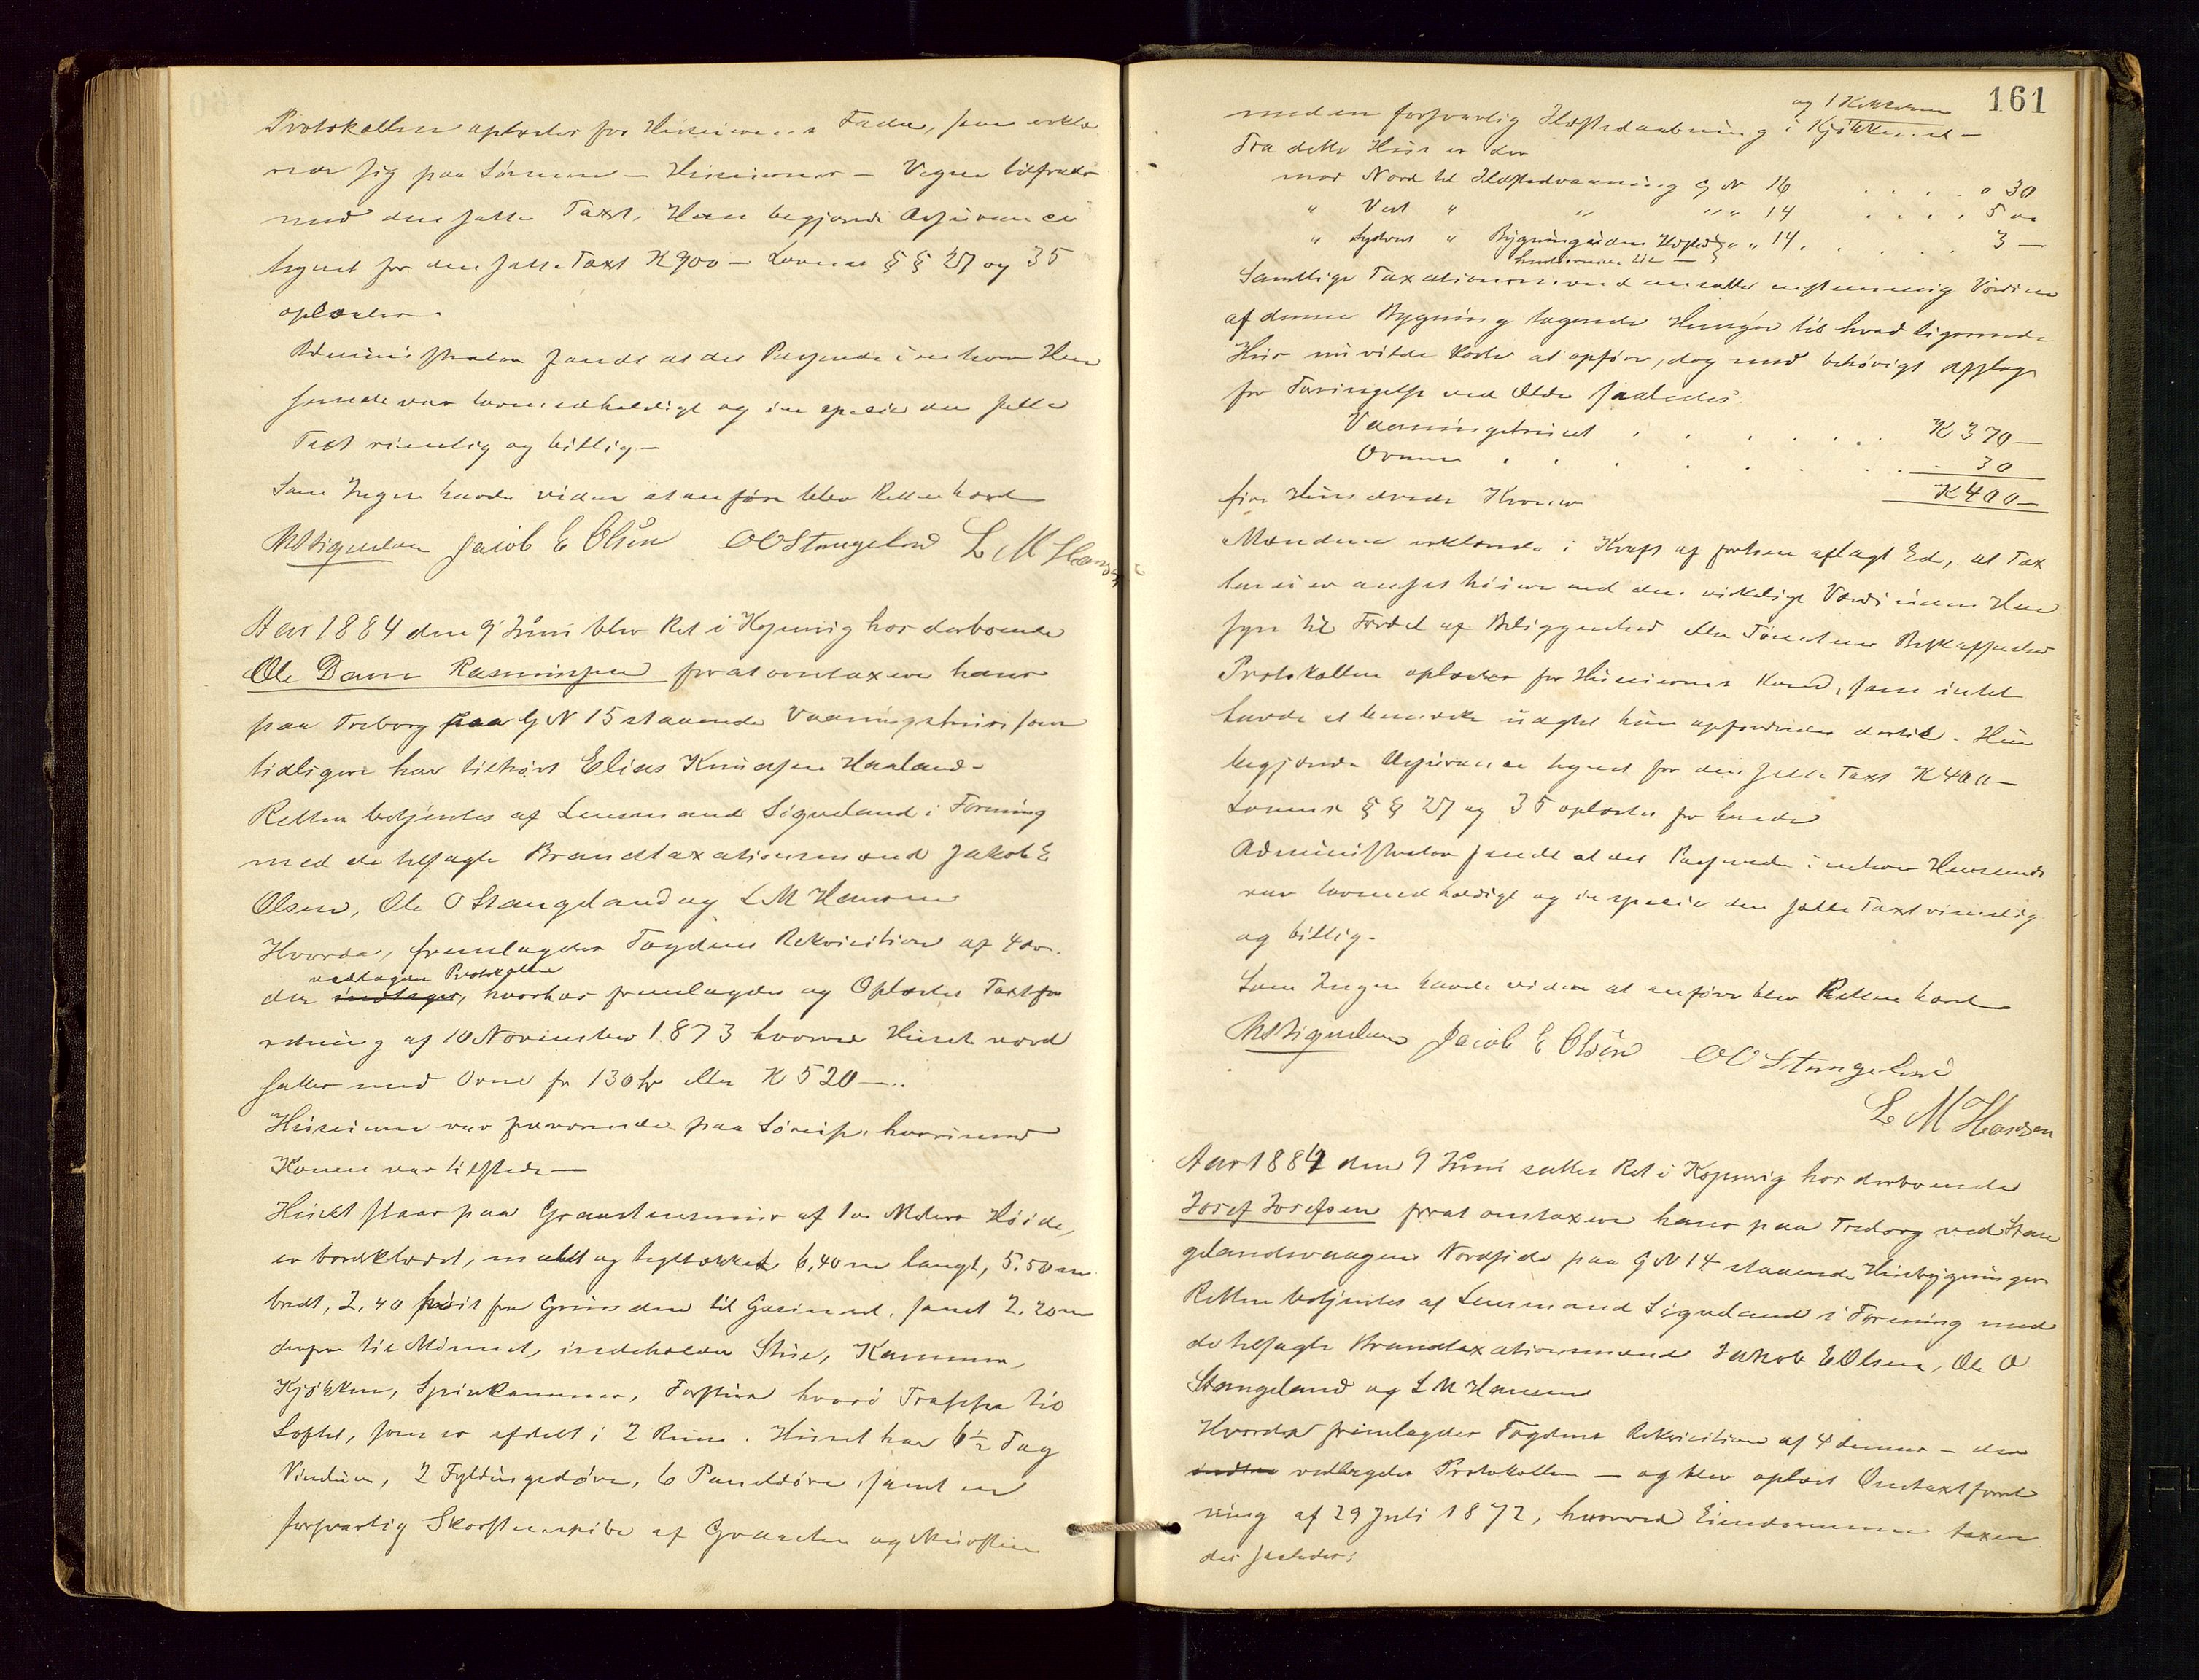 Protokollen oplæstes for Huseierens Fader, som erklæ
rede sig paa Sønnens – Huseierens – Vegne tilfreds
med den satte Taxt. Han begjærede Assurance
tegnet for den satte Taxt K 900 – Lovens §§ 27 og 35
oplæstes.
Administrator fandt at det Passerede i enhver Hen
seende var lovmedholdigt og in specie den satte
Taxt rimelig og billig –
Som Ingen havde videre at anføre blev Retten hævet
Jacob E Olsen OO Stangeland L M Hansen
Aar 1884 den 9 Juni blev Ret i Kopervig hos derboende
Ole Dam Rasmussen for at omtaxere hans
paa Treborg paa G N 15 staaende Vaaningshuus som
tidligere har tilhørt Elias Knudsen Haaland.
Retten betjentes af Lensmand Liqueland i Forening
med de tilsagte Brandtaxationsmænd Jakob E
Olsen, Ole O Stangeland og L M Hansen
Hvorda, fremlagdes Fogdens Rekvisition af 4 ds.
vedlagdes Protokollen
der indtages, hvorhos fremlagdes og Oplæstes Taxtfor
retning af 10 November 1873 hvorved Huset værd
sattes med Ovne for 130 Sp eller K 520 –.
Huseieren var fraværende paa Søreise, hvorimod
Konen var tilstede –
Huset staar paa Graastensmur af 1 m Meters Høide,
er bordklædt, malet og tegltækket 6,40 m langt, 5.50 m
bredt, 2,40 høit fra Grunden til Gesimset, samt 2.20 m
derfra til Mønnet, indeholder Stue, Kammer,
Kjøkken, Spisekammer, Forstue hvori Trappe til
Loftet, som er afdelt i 2 Rum. Huset har 6½ Fag
Vinduer, 2 Fyldingsdøre, 6 Paneldøre samt en
forsvarlig Skorstenspibe af Graasten og Mursten
161
og 1 Kakkelovn
med en forsvarlig Ildstedaabning i Kjøkkenet –
Fra dette Hus er der
mod Nord til Ildstedvaaning G N 16 . . . . 30
" Vest " " " " 14 . . . . 5
" Sydvest " Bygning uden Ildsted " " 14 . . . . 3 –
Samtlige Taxationsmænd ansatte enstemmig Værdien
af denne Bygning tagende Hensyn til hvad lignende
Huse nu vilde koste at opføre, dog med behørigt Afslag
for Forringelse ved Ælde saaledes:
Vaaningshuset . . . . . . K 370 –
Ovnen . . . . . . 30
fire Hundrede Kroner K 400 –
Mændene erklærede i Kraft af forhen aflagt Ed, at Tax
ten ei er ansat høiere end den virkelige Værdi uden Hen
syn til Fordel af Beliggenhed eller Tomtens Beskaffenhed
Protokollen oplæstes for Huseierens Kone, som intet
havde at bemærke uagtet hun opfordredes dertil. Hun
begjærede Assurance tegnet for den satte Taxt K 400 –
Lovens §§ 27 og 35 oplæstes for hende
Administrator fandt at det Passerede i enhver Henseende
var lovmedholdigt og in specie den satte Taxt rimelig
og billig.
Som Ingen havde videre at anføre blev Retten hævet
Jacob E Olsen OO Stangeland
L M Hansen
Aar 1884 den 9 Juni sattes Ret i Kopervig hos derboende
Josef Josefsen for at omtaxere hans paa Treborg ved Stan
gelandsvaagens Nordside paa G N 14 staaende Husbygninger
Retten betjentes af Lensmand Liqueland i Forening med
de tilsagte Brandtaxationsmænd Jakob E Olsen, Ole O
Stangeland og L M Hansen
Hvorda fremlagdes Fogdens Rekvisition af 4 dennes – der
vedlagdes Protokollen – og blev oplæst Omtaxtforret
ning af 29 Juli 1872, hvorved Eiendommen taxere
des saaledes: